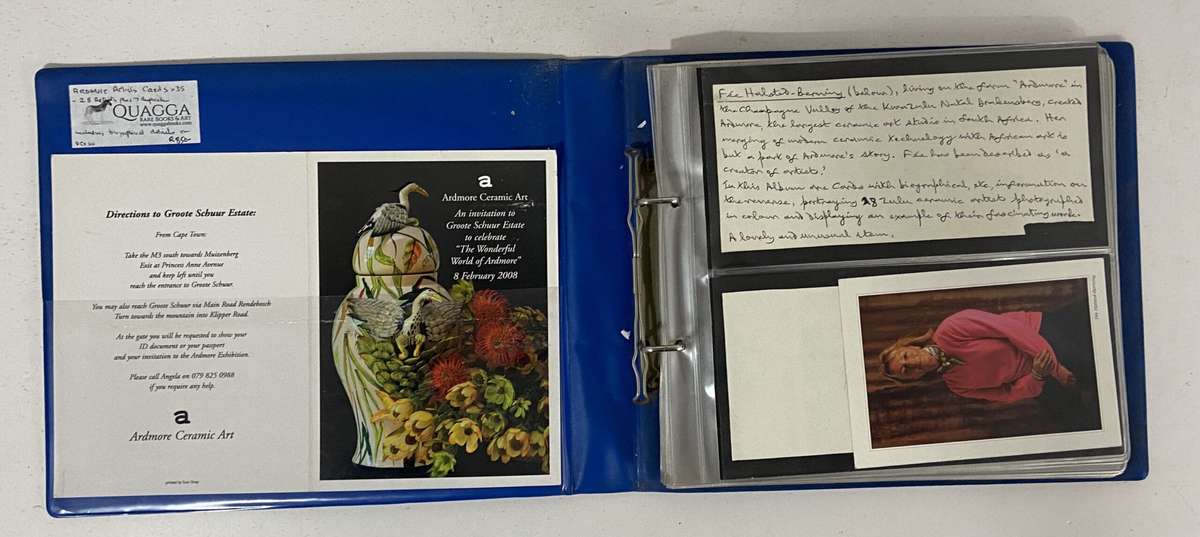 Ardmore Artists Cards x35
- 28 Artists Plus 7 duplicates
QUAGGA
RARE BOOKS & ART
www.quaggabooks.com
includes biographical details on
Directions to Groote Schuur Estate:
From Cape Town:
Take the M3 south towards Muizenberg
Exit at Princess Anne Avenue
and keep left until you
reach the entrance to Groote Schuur.
You may also reach Groote Schuur via Main Road Rondebosch
Turn towards the mountain into Klipper Road.
At the gate you will be requested to show your
ID document or your passport
and your invitation to the Ardmore Exhibition.
Please call Angela on 079 825 0988
if you require any help.
a
Ardmore Ceramic Art
a
Ardmore Ceramic Art
An invitation to
Groote Schuur Estate
to celebrate
"The Wonderful
World of Ardmore"
8 February 2008
Fée Halsted-Berning (below), living on the farm "Ardmore" in
the Champagne Valley of the KwaZulu Natal Drakensberg, created
Ardmore, the largest ceramic art studio in South Africa. Her
merging of modern ceramic technology with African art is
but a part of Ardmore's story. Fée has been described as 'a
creator of artists.'
In this Album are Cards with biographical, etc, information on
the reverse, portraying 28 Zulu ceramic artists photographed
in colour and displaying an example of their fascinating work.
A lovely and unusual item.
Fée Halsted-Berning